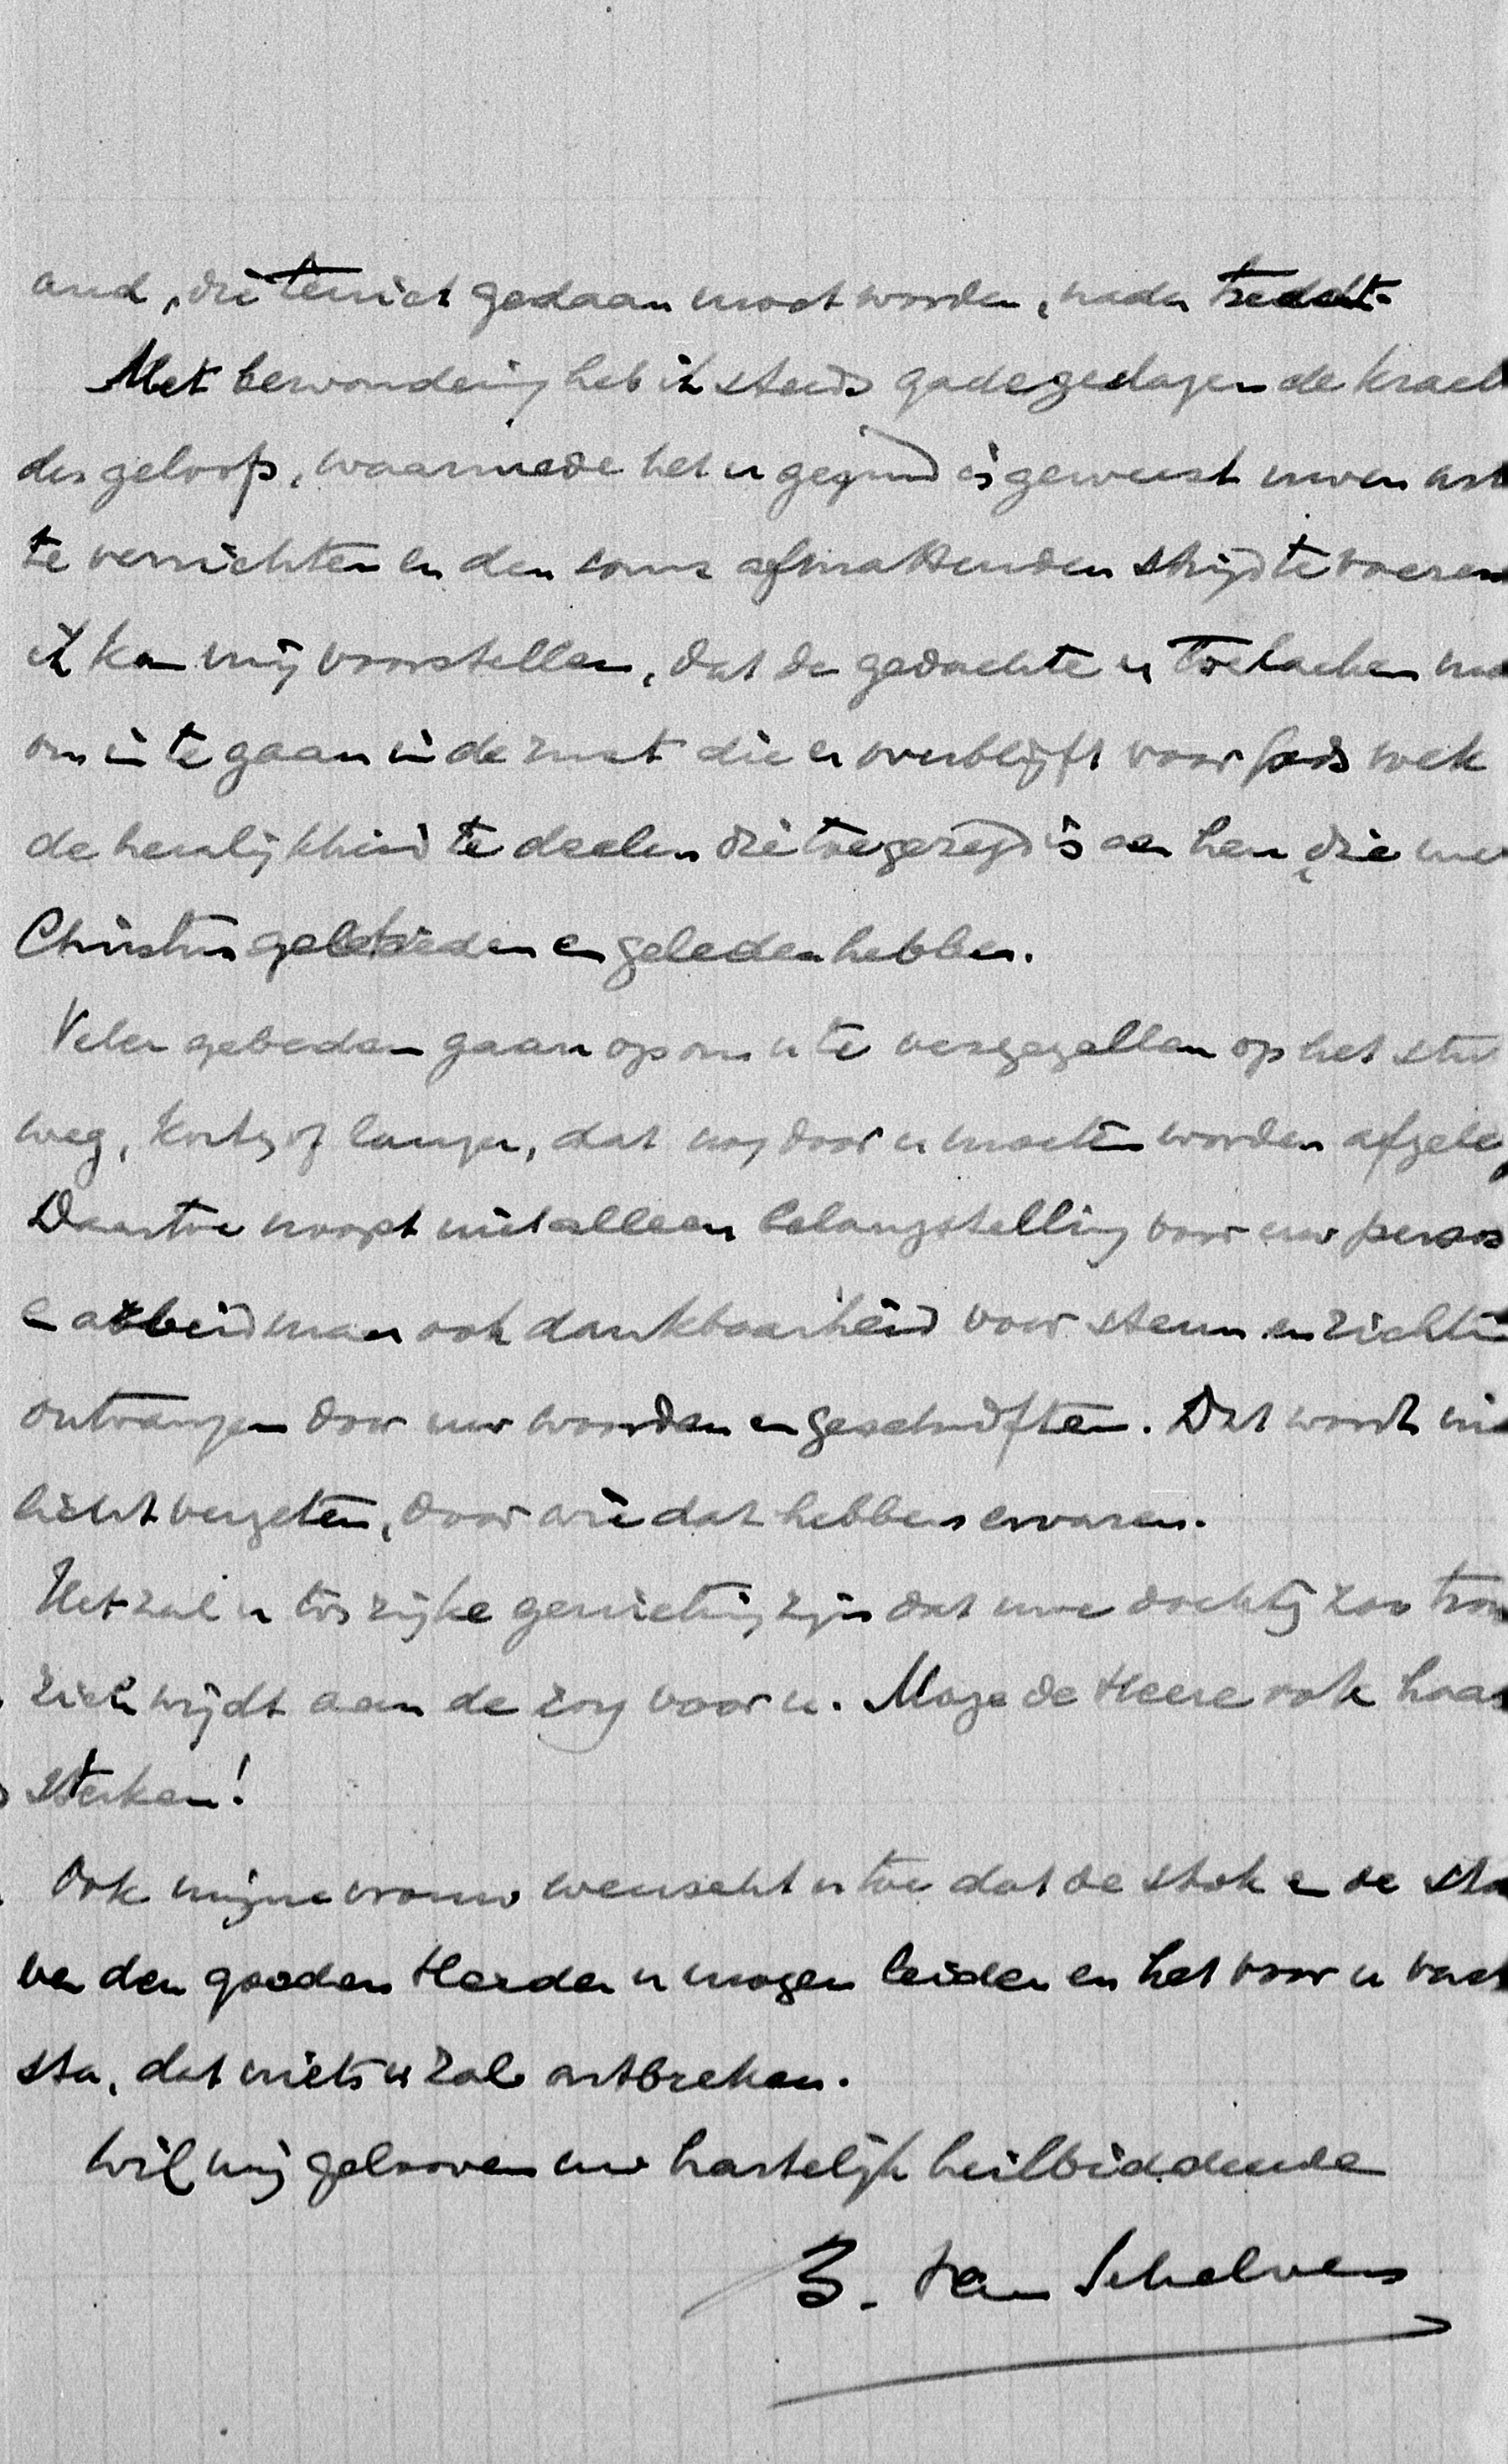 and, die teniet gedaan moet worden, nader treedt.
Met bewondering heb ik steeds gadegeslagen de krach
des geloofs, waarmede het u gegund is geweest uwen ar
te verrichten en den soms afmattenden strijd te voeren
ik kan mij voorstellen, dat de gedachte u toelachen
om in te gaan in de rust die er overblijft voor Gods volk
de heerlijkheid te deelen die toegezegd is aan hen, die me
Christus gestreden en geleden hebben.
Veler gebeden gaan op om u te vergezellen op het
weg, korter of langer, dat nog door u moeten worden afgele
Daartoe noopt niet alleen belangstelling voor uw persoo
en arbeid maar ook dankbaarheid voor steun en richti
ontvangen door uw woorden en geschriften. Dat wordt nie
licht vergeten, door wie dat hebben ervaren.
Het zal u tot rijke genieting zijn dat uwe dochter zoo trou
zich wijdt aan de zorg voor u. Moge de Heere ook haar
sterken!
Ook mijne vrouw wenscht u toe dat de stok en de sta
van den goeden Herder u mogen leiden en het voor u vast
sta, dat niets u zal ontbreken.
Wil mij gelooven uw hartelijk heilbiddende
B. van Schelven